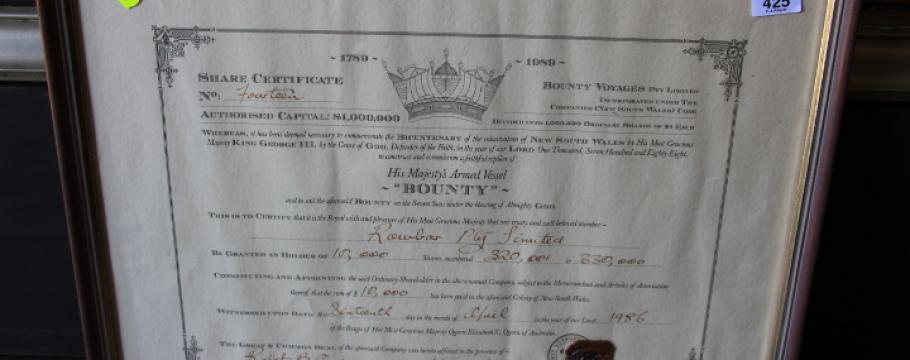 425
~ 1789 ~ ~ 1989 ~
SHARE CERTIFICATE
No: Fourteen
AUTHORISED CAPITAL: $1,000,000
BOUNTY VOYAGES PTY LIMITED
INCORPORATED UNDER THE
COMPANIES (NEW SOUTH WALES) CODE
DIVIDED INTO 1,000,000 ORDINARY SHARES OF $1 EACH
WHEREAS, it has been deemed necessary to commemorate the BICENTENARY of the colonization of NEW SOUTH WALES by His Most Gracious
Majesty KING GEORGE III, by the Grace of GOD, Defender of the Faith, in the year of our LORD One Thousand, Seven Hundred and Eighty Eight,
to construct and commission a faithful replica of
His Majesty's Armed Vessel
~ "BOUNTY" ~
and to sail the aforesaid BOUNTY on the Seven Seas under the blessing of Almighty GOD
THIS IS TO CERTIFY that it is the Royal wish and pleasure of His Most Gracious Majesty that our trusty and well beloved member ~
Rowbar Pty Limited
BE GRANTED AS HOLDER OF 10,000 Shares numbered 320,001 to 330,000
CONSTITUTING AND APPOINTING the said Ordinary Shareholder in the abovenamed Company, subject to the Memorandum and Articles of Association
thereof, that the sum of $ 10,000 has been paid in the aforesaid Colony of New South Wales.
WITNESSED UPON DATE: the Sixteenth day in the month of April in the year of our Lord 1986
of the Reign of Her Most Gracious Majesty Queen Elizabeth II, Queen of Australia.
THE GREAT & COMMON SEAL of the aforesaid Company was hereto affixed in the presence of ~